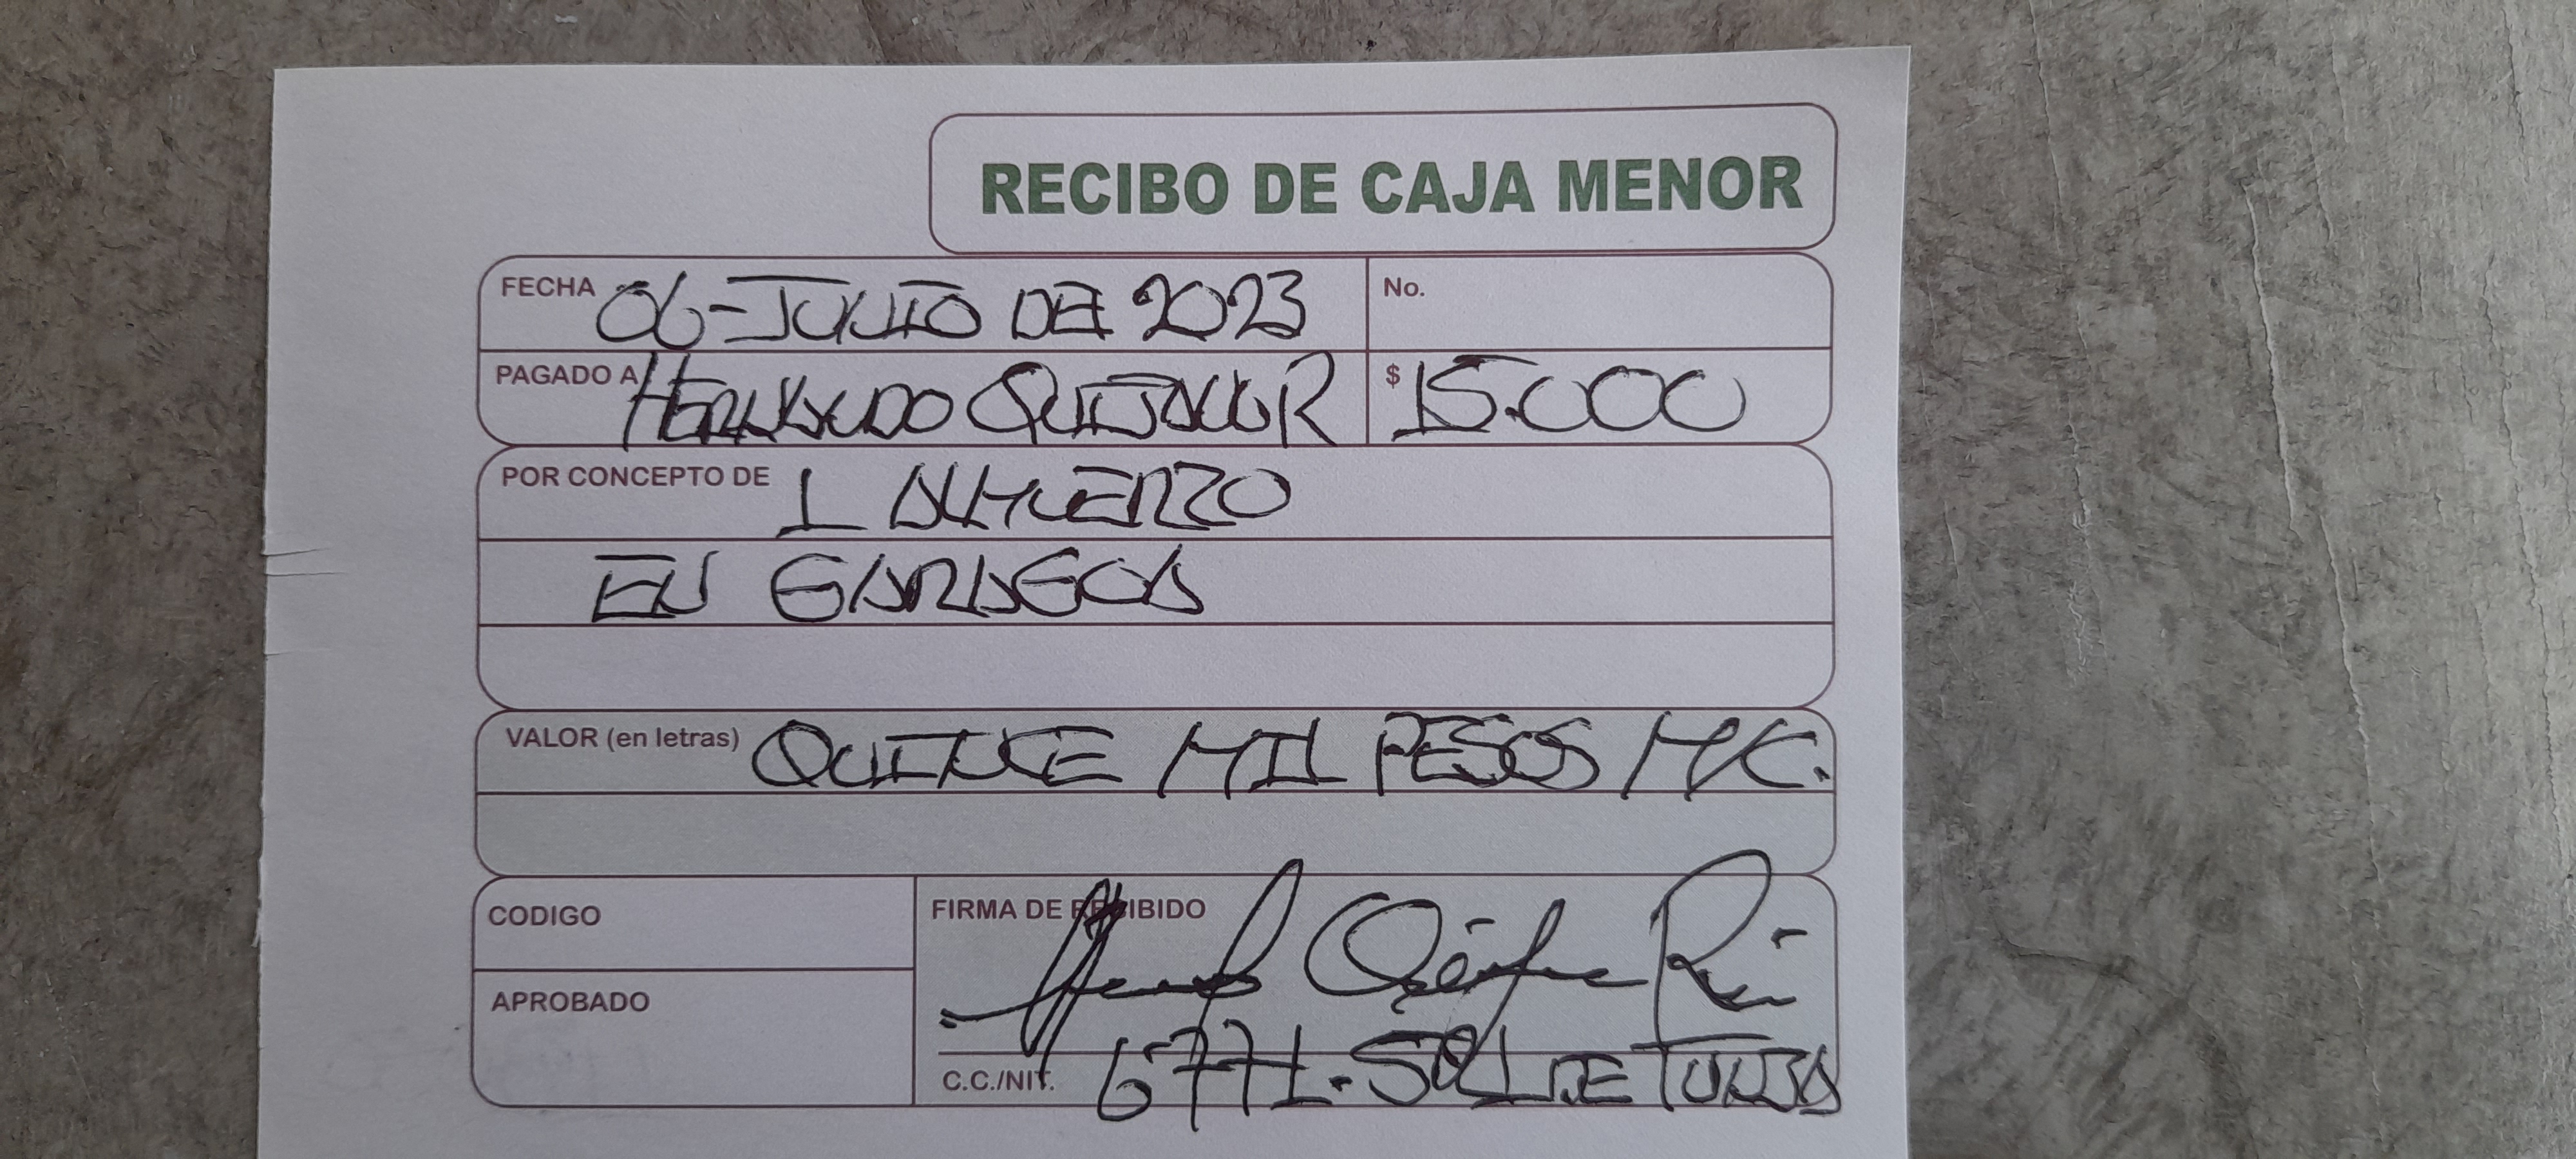 RECIBO DE CAJA MENOR
FECHA 06-JULIO DEL 2023 No.
PAGADO A HERNANDO QUIJANO R $ 15.000
POR CONCEPTO DE 1 ALMUERZO
EN GARAGOA
VALOR (en letras) QUINCE MIL PESOS M/C.
CODIGO
FIRMA DE RECIBIDO
APROBADO
C.C./NIT. DE TUNJA